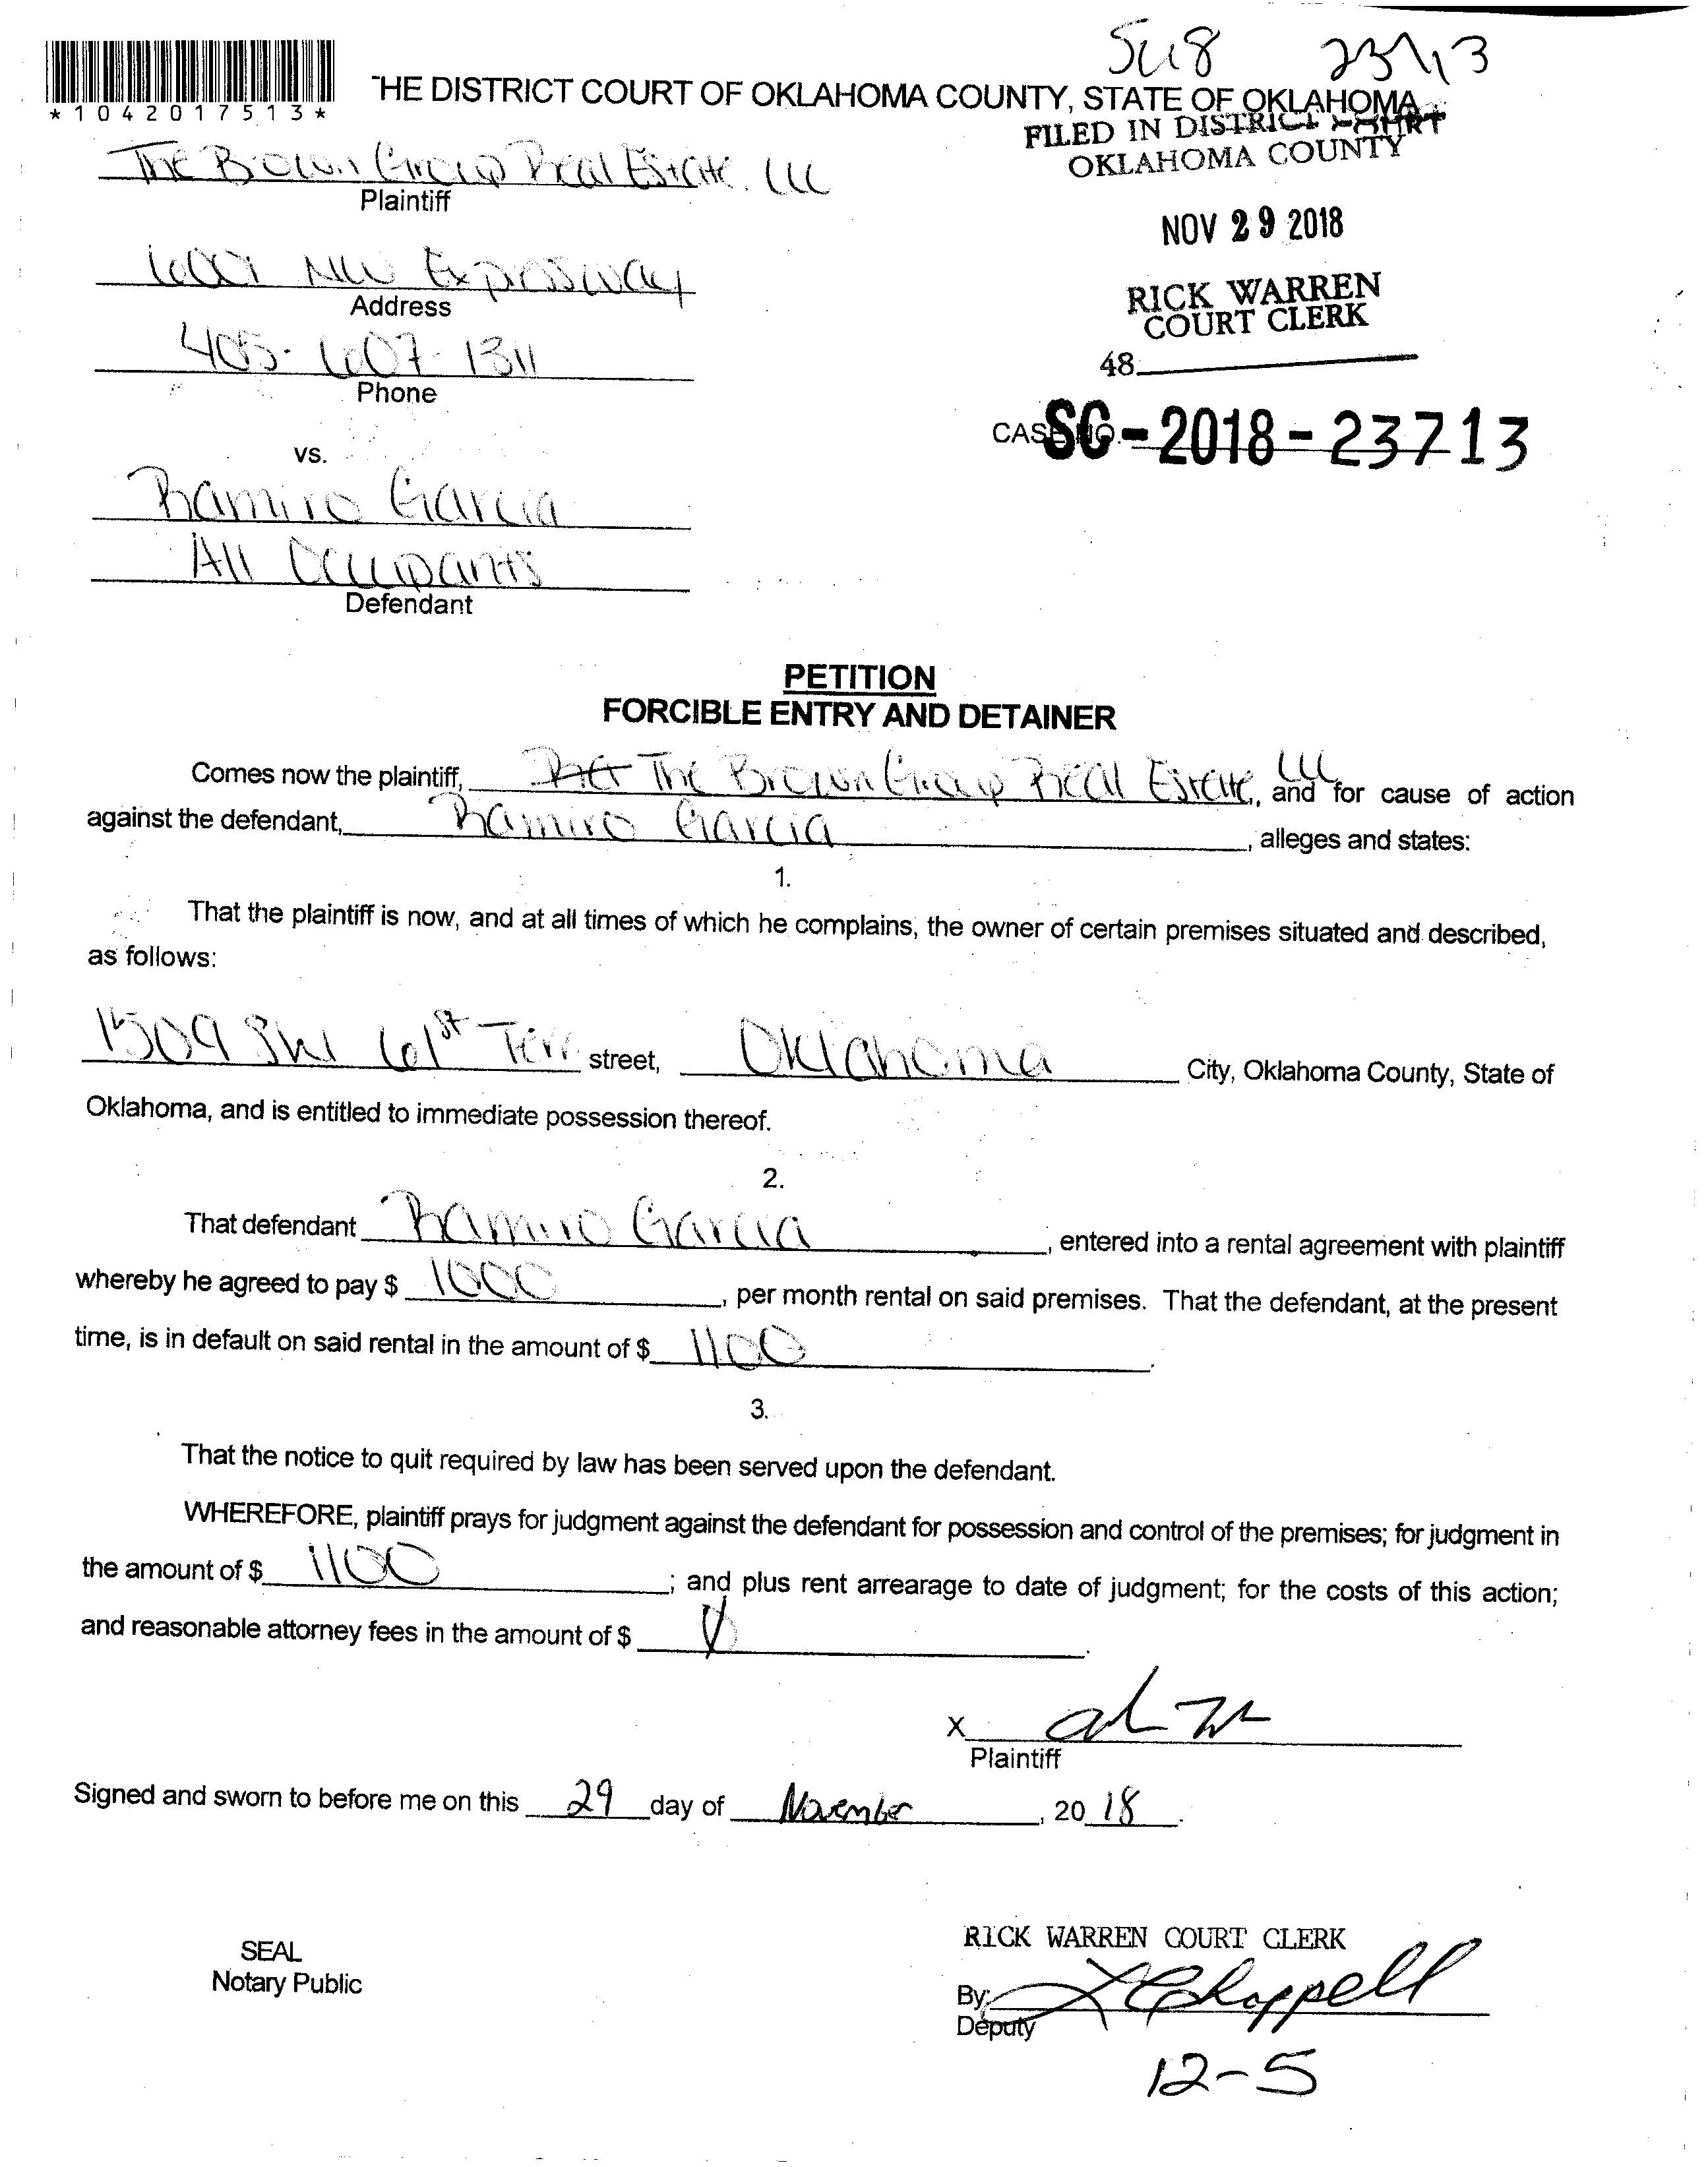 23713
*1042017513*
THE DISTRICT COURT OF OKLAHOMA COUNTY, STATE OF OKLAHOMA
FILED IN DISTRICT COURT
OKLAHOMA COUNTY
The Brown Group Real Estate, LLC
Plaintiff
NOV 29 2018
6001 NW Expressway
Address
RICK WARREN
COURT CLERK
405-607-1311
Phone
48
CASE NO. SC-2018-23713
vs.
Ramiro Garcia
All Occupants
Defendant
PETITION
FORCIBLE ENTRY AND DETAINER
Comes now the plaintiff, The Brown Group Real Estate, LLC, and for cause of action
against the defendant, Ramiro Garcia, alleges and states:
1.
That the plaintiff is now, and at all times of which he complains, the owner of certain premises situated and described,
as follows:
1509 SW 61st Terr street, Oklahoma City, Oklahoma County, State of
Oklahoma, and is entitled to immediate possession thereof.
2.
That defendant Ramiro Garcia, entered into a rental agreement with plaintiff
whereby he agreed to pay $ 1000, per month rental on said premises. That the defendant, at the present
time, is in default on said rental in the amount of $ 1100.
3.
That the notice to quit required by law has been served upon the defendant.
WHEREFORE, plaintiff prays for judgment against the defendant for possession and control of the premises; for judgment in
the amount of $ 1100; and plus rent arrearage to date of judgment; for the costs of this action;
and reasonable attorney fees in the amount of $
X
Plaintiff
Signed and sworn to before me on this 29 day of November, 2018.
SEAL
Notary Public
RICK WARREN COURT CLERK
By: Chappell
Deputy
12-5